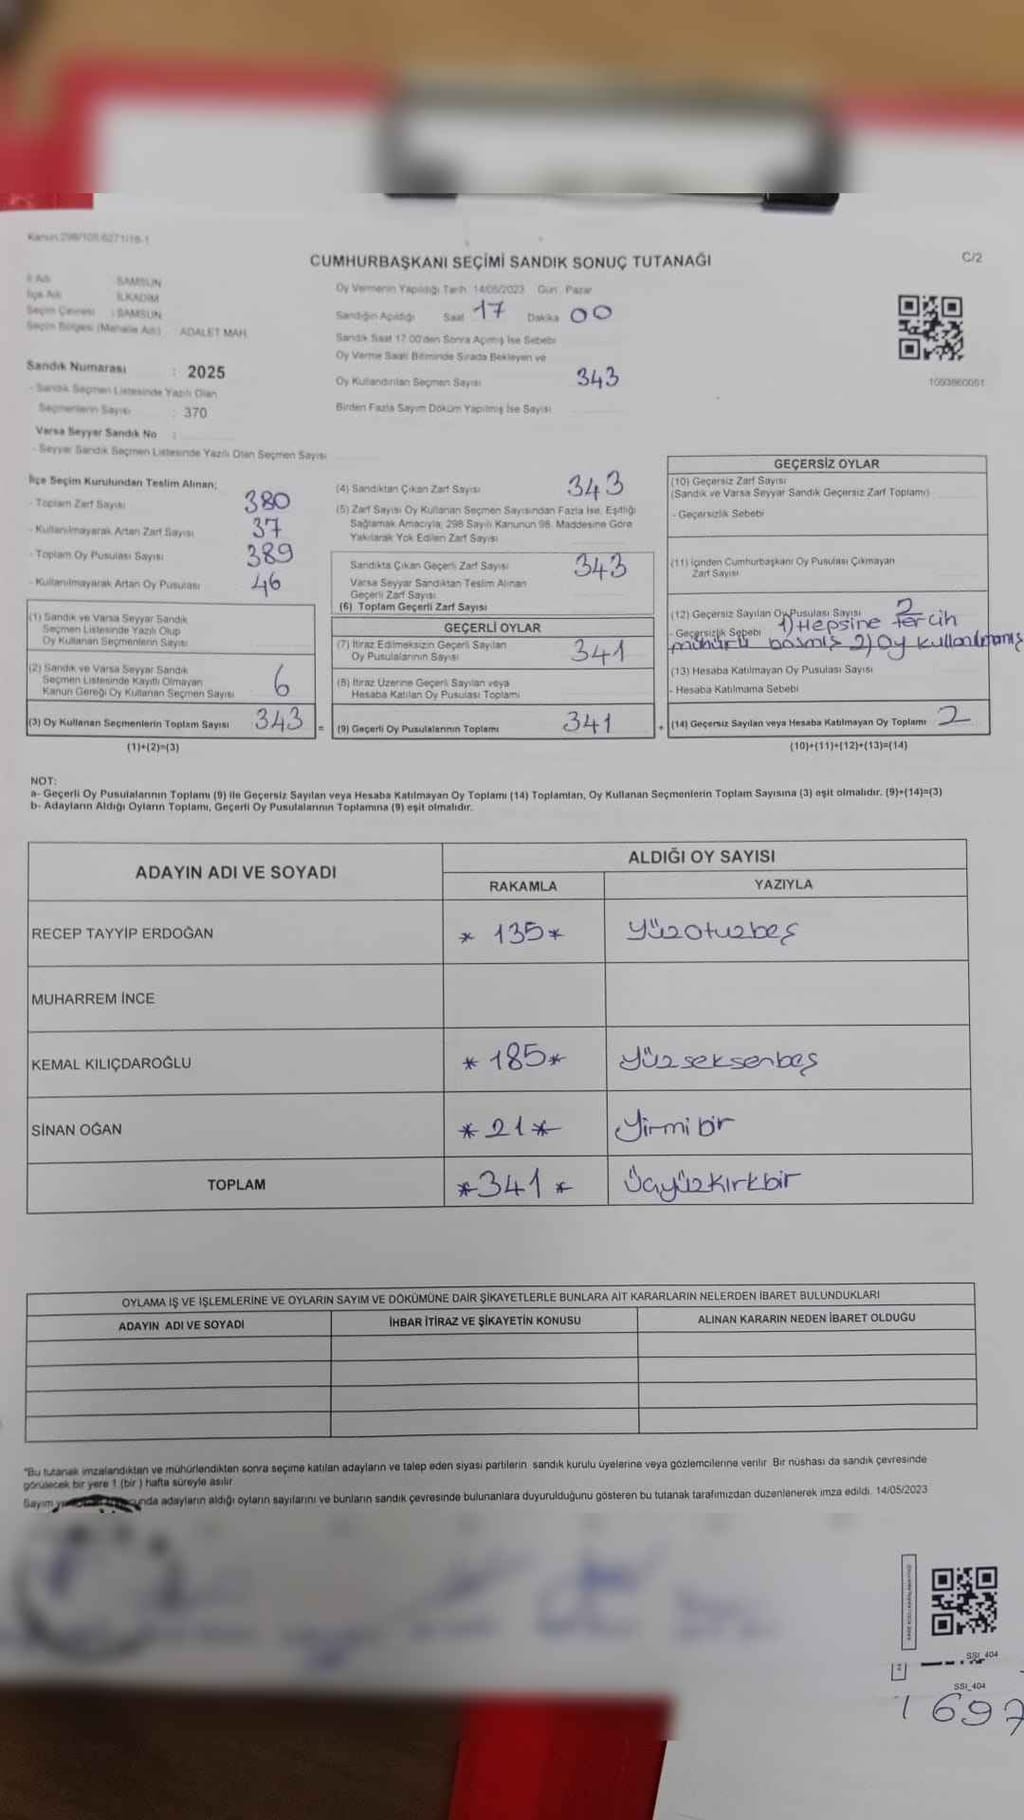 Kanun:298/105,6271/18-1
CUMHURBAŞKANI SEÇİMİ SANDIK SONUÇ TUTANAĞI
C/2
İl Adı SAMSUN
İlçe Adı İLKADIM
Seçim Çevresi : SAMSUN
Seçim Bölgesi (Mahalle Adı) : ADALET MAH.
Sandık Numarası : 2025
- Sandık Seçmen Listesinde Yazılı Olan
Seçmenlerin Sayısı : 370
Varsa Seyyar Sandık No :
- Seyyar Sandık Seçmen Listesinde Yazılı Olan Seçmen Sayısı
Oy Vermenin Yapıldığı Tarih: 14/05/2023 Gün: Pazar
Sandığın Açıldığı Saat 17 Dakika 00
Sandık Saat 17.00'den Sonra Açılmış İse Sebebi
Oy Verme Saati Bitiminde Sırada Bekleyen ve
Oy Kullandırılan Seçmen Sayısı 343
Birden Fazla Sayım Döküm Yapılmış İse Sayısı
1093860051
İlçe Seçim Kurulundan Teslim Alınan;
- Toplam Zarf Sayısı 380
- Kullanılmayarak Artan Zarf Sayısı 37
- Toplam Oy Pusulası Sayısı 389
- Kullanılmayarak Artan Oy Pusulası 46
(1) Sandık ve Varsa Seyyar Sandık
Seçmen Listesinde Yazılı Olup
Oy Kullanan Seçmenlerin Sayısı
(2) Sandık ve Varsa Seyyar Sandık
Seçmen Listesinde Kayıtlı Olmayan
Kanun Gereği Oy Kullanan Seçmen Sayısı 6
(3) Oy Kullanan Seçmenlerin Toplam Sayısı 343
(1)+(2)=(3)
(4) Sandıktan Çıkan Zarf Sayısı 343
(5) Zarf Sayısı Oy Kullanan Seçmen Sayısından Fazla İse, Eşitliği
Sağlamak Amacıyla, 298 Sayılı Kanunun 98. Maddesine Göre
Yakılarak Yok Edilen Zarf Sayısı
Sandıkta Çıkan Geçerli Zarf Sayısı 343
Varsa Seyyar Sandıktan Teslim Alınan
Geçerli Zarf Sayısı
(6) Toplam Geçerli Zarf Sayısı
GEÇERLİ OYLAR
(7) İtiraz Edilmeksizin Geçerli Sayılan
Oy Pusulalarının Sayısı 341
(8) İtiraz Üzerine Geçerli Sayılan veya
Hesaba Katılan Oy Pusulası Toplamı
= (9) Geçerli Oy Pusulalarının Toplamı 341
GEÇERSİZ OYLAR
(10) Geçersiz Zarf Sayısı
(Sandık ve Varsa Seyyar Sandık Geçersiz Zarf Toplamı)
- Geçersizlik Sebebi
(11) İçinden Cumhurbaşkanı Oy Pusulası Çıkmayan
Zarf Sayısı
(12) Geçersiz Sayılan Oy Pusulası Sayısı 2
- Geçersizlik Sebebi 1) Hepsine tercih
mühürü basmış 2) Oy kullanılmamış
(13) Hesaba Katılmayan Oy Pusulası Sayısı
- Hesaba Katılmama Sebebi
+ (14) Geçersiz Sayılan veya Hesaba Katılmayan Oy Toplamı 2
(10)+(11)+(12)+(13)=(14)
NOT:
a- Geçerli Oy Pusulalarının Toplamı (9) ile Geçersiz Sayılan veya Hesaba Katılmayan Oy Toplamı (14) Toplamları, Oy Kullanan Seçmenlerin Toplam Sayısına (3) eşit olmalıdır. (9)+(14)=(3)
b- Adayların Aldığı Oyların Toplamı, Geçerli Oy Pusulalarının Toplamına (9) eşit olmalıdır.
ADAYIN ADI VE SOYADI
ALDIĞI OY SAYISI
RAKAMLA YAZIYLA
RECEP TAYYİP ERDOĞAN * 135 * Yüzotuzbeş
MUHARREM İNCE
KEMAL KILIÇDAROĞLU * 185 * Yüzseksenbeş
SİNAN OĞAN * 21 * Yirmibir
TOPLAM * 341 * Üçyüzkırkbir
OYLAMA İŞ VE İŞLEMLERİNE VE OYLARIN SAYIM VE DÖKÜMÜNE DAİR ŞİKAYETLERLE BUNLARA AİT KARARLARIN NELERDEN İBARET BULUNDUKLARI
ADAYIN ADI VE SOYADI İHBAR İTİRAZ VE ŞİKAYETİN KONUSU ALINAN KARARIN NEDEN İBARET OLDUĞU
"Bu tutanak imzalandıktan ve mühürlendikten sonra seçime katılan adayların ve talep eden siyasi partilerin sandık kurulu üyelerine veya gözlemcilerine verilir. Bir nüshası da sandık çevresinde
görülecek bir yere 1 (bir) hafta süreyle asılır.
Sayım adayların aldığı oyların sayılarını ve bunların sandık çevresinde bulunanlara duyurulduğunu gösteren bu tutanak tarafımızdan düzenlenerek imza edildi. 14/05/2023
SSI_404
SSI_404
1697